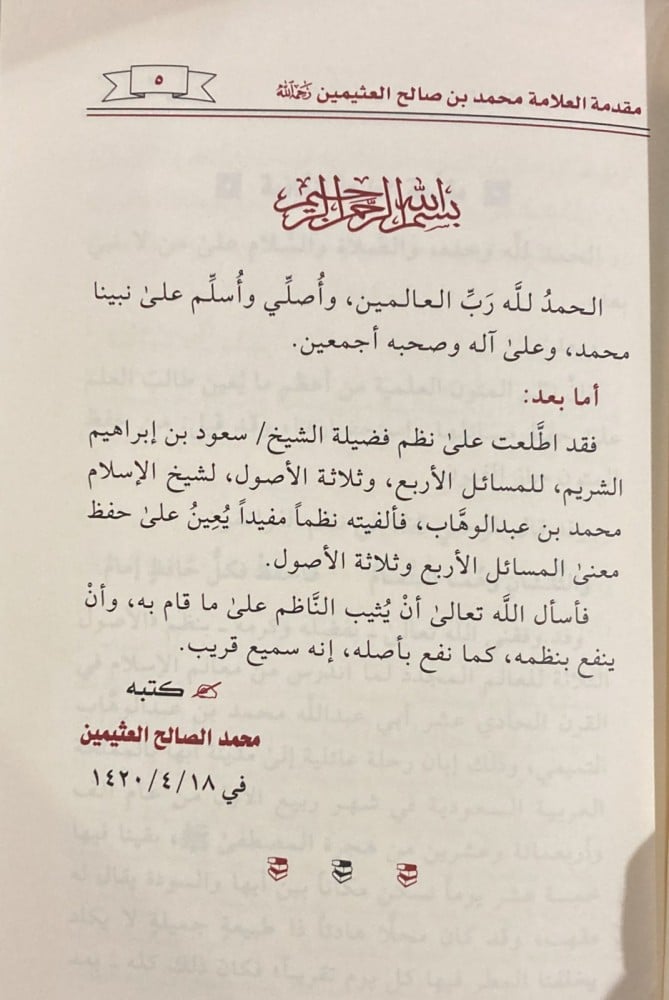 مقدمة العلامة محمد بن صالح العثيمين رحمه الله
٥
بسم الله الرحمن الرحيم
الحمدُ للَّه رَبِّ العالمين، وأُصلِّي وأُسلِّم علىٰ نبينا
محمد، وعلىٰ آله وصحبه أجمعين.
أما بعد:
فقد اطَّلعت علىٰ نظم فضيلة الشيخ/ سعود بن إبراهيم
الشريم، للمسائل الأربع، وثلاثة الأصول، لشيخ الإسلام
محمد بن عبدالوهَّاب، فألفيته نظماً مفيداً يُعِينُ علىٰ حفظ
معنىٰ المسائل الأربع وثلاثة الأصول.
فأسأل اللَّه تعالىٰ أنْ يُثيب النَّاظم علىٰ ما قام به، وأنْ
ينفع بنظمه، كما نفع بأصله، إنه سميع قريب.
كتبه
محمد الصالح العثيمين
في ١٤٢٠/٤/١٨